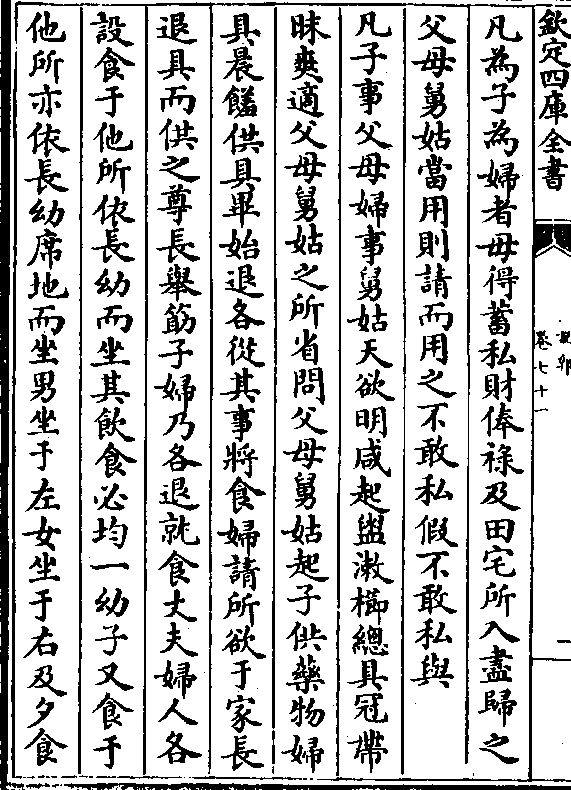 欽定四庫全書
說郛
卷七十一
一
凡為子為婦者毋得蓄私財俸祿及田宅所入盡歸之
父母舅姑當用則請而用之不敢私假不敢私與
凡子事父母婦事舅姑天欲明咸起盥漱櫛總具冠帶
昧爽適父母舅姑之所省問父母舅姑起子供藥物婦
具晨饈供具畢始退各從其事將食婦請所欲于家長
退具而供之尊長舉筯子婦乃各退就食丈夫婦人各
設食于他所依長幼而坐其飲食必均一幼子又食于
他所亦依長幼席地而坐男坐于左女坐于右及夕食